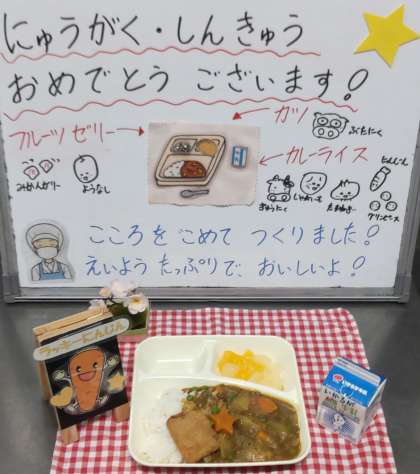 にゅうがく・しんきゅう
おめでとう ございます!
カツ
ぶたにく
フルーツ ゼリー
カレーライス
にんじん
みかんゼリー
ようなし
ぎゅうにく
じゃがいも
たまねぎ
グリンピース
こころを こめて つくりました!
えいよう たっぷりで、おいしいよ!
ラッキーにんじん